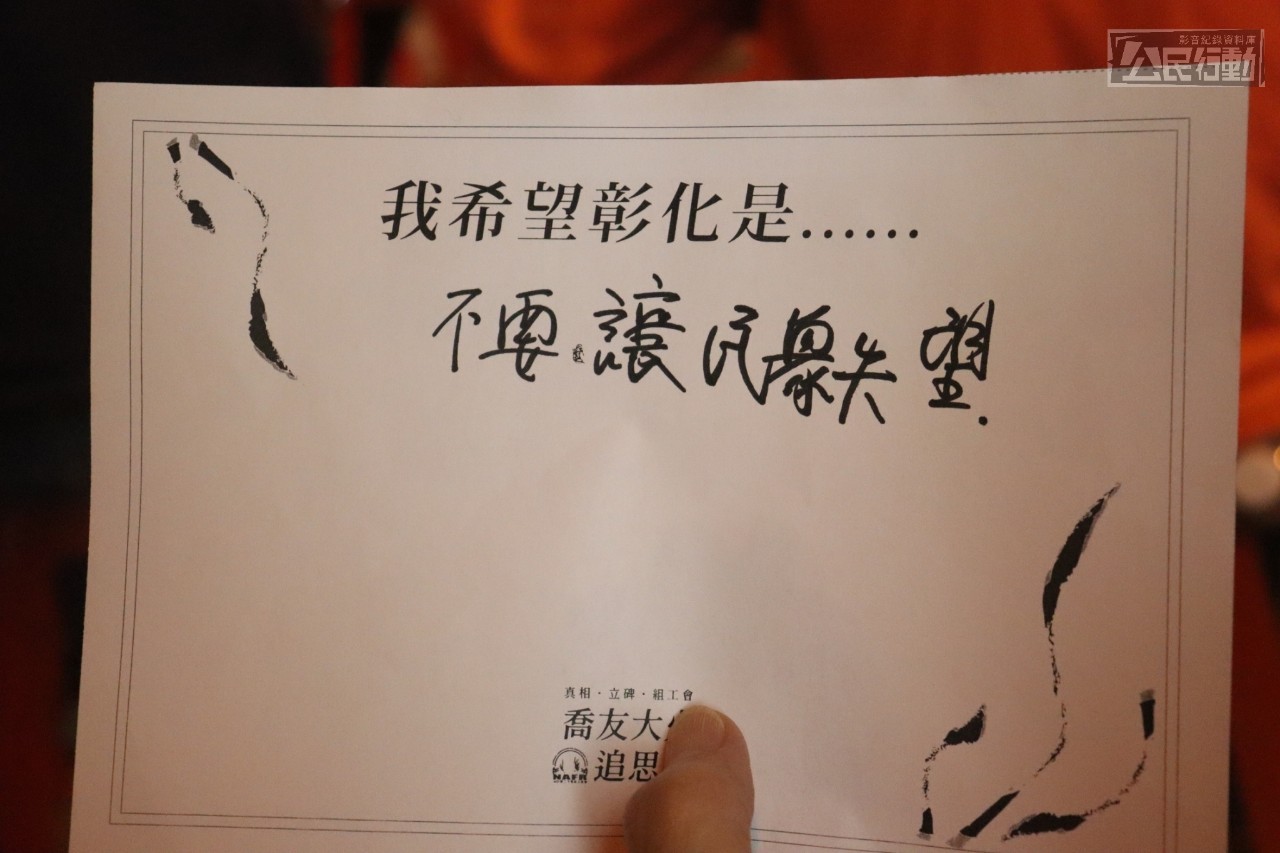 影音紀錄資料庫
公民行動
我希望彰化是......
不要讓民眾失望.
真相・立碑・組工會
喬友大
追思
NAFR